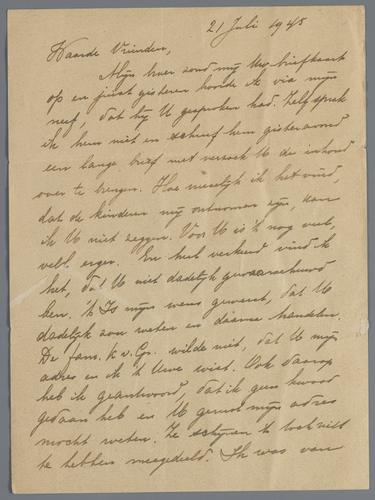 21 Juli 1945
Waarde Vrienden,
Mijn broer zond mij Uw briefkaart
op en juist gisteren hoorde ik via mijn
neef, dat hij U gesproken had. Zelf sprak
ik hem niet en schreef hem gisteravond
een lange brief met verzoek U de inhoud
over te brengen. Hoe moeilijk ik het vind,
dat de kinderen mij ontnomen zijn, kan
ik U niet zeggen. Voor U is 't nog veel,
veel erger. En heel verkeerd vind ik
het, dat U niet dadelijk gewaarschuwd
ben. 't Is mijn wens geweest, dat U
dadelijk zou weten en daarna handelen.
De fam. K. v. Gr. wilde niet, dat U mijn
adres en ik 't Uwe wist. Ook daarop
heb ik geantwoord, dat ik geen kwaad
gedaan heb en U gerust mijn adres
mocht weten. Ze schijnen 't toch niet
te hebben meegedeeld. Ik was van